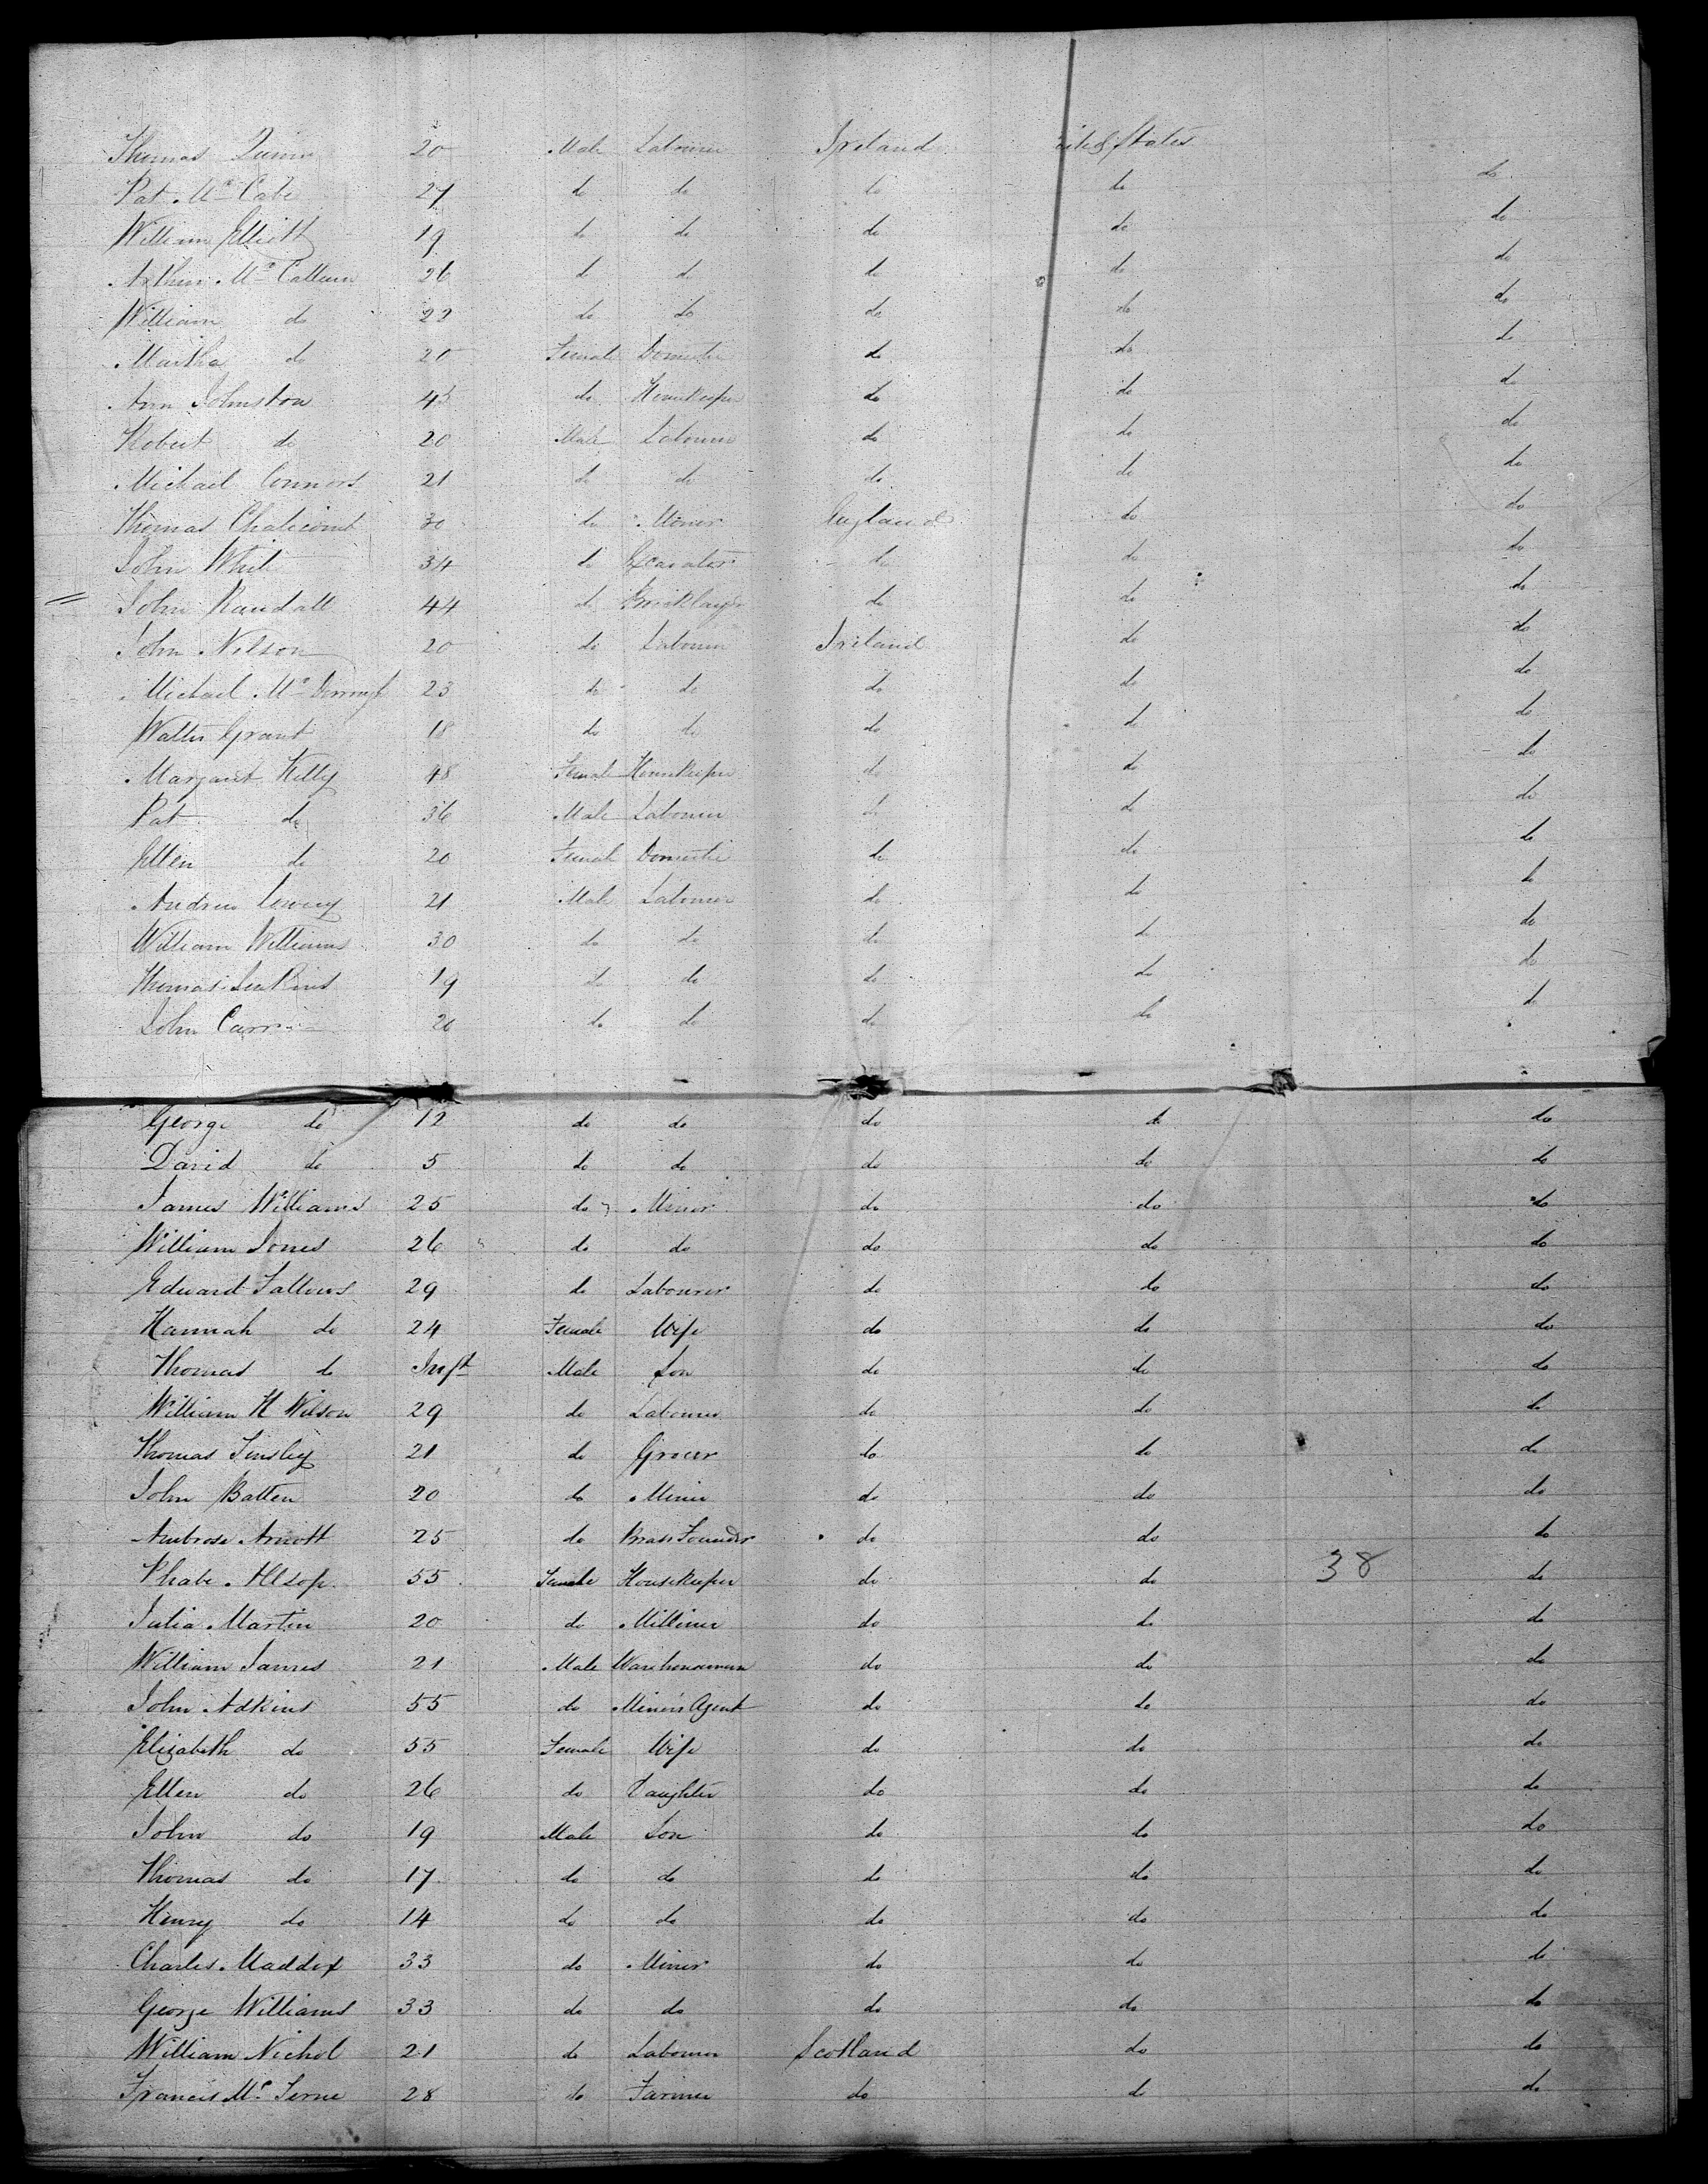 Thomas Quinn 20 Male Labourer Ireland States
Pat Mc Cabe 27 do do do do do
William Elliott 19 do do do do do
Arthur Mc Callum 26 do do do do do
William do 22 do do do do do
Martha do 20 Female Domestic do do do
Ann Johnston 45 do Housekeeper do do do
Robert do 20 Male Labourer do do do
Michael Connors 21 do do do do do
Thomas Chalicomb 30 do Miner England do do
John White 34 do Excavator do do do
John Randall 44 do Bricklayer do do do
John Nelson 20 do Labourer Ireland do do
Michael Mc 23 do do do do do
Walter Grant 18 do do do do do
Margaret Kelly 48 Female Housekeeper do do do
Pat do 36 Male Labourer do do do
Ellen do 20 Female Domestic do do do
Andrew 21 Male Labourer do do do
William Williams 30 do do do do do
Thomas Jenkins 19 do do do do do
John Carr 20 do do do do do
George do 12 do do do do do
David do 5 do do do do do
James Williams 25 do Miner do do do
William Jones 26 do do do do do
Edward Fallows 29 do Labourer do do do
Hannah do 24 Female Wife do do do
Thomas do Inft Male Son do do do
William H Wilson 29 do Labourer do do do
Thomas Tinsley 21 do Grocer do do do
John Batten 20 do Miner do do do
Ambrose Arnott 25 do Brass Founder do do do
Phabe Allsop 55 Female Housekeeper do do 38 do
Julia Martin 20 do Milliner do do do
William James 21 Male Warehouseman do do do
John Adkins 55 do Miners Agent do do do
Elizabeth do 55 Female Wife do do do
Ellen do 26 do Daughter do do do
John do 19 Male Son do do do
Thomas do 17 do do do do do
Henry do 14 do do do do do
Charles Maddox 33 do Miner do do do
George Williams 33 do do do do do
William Nichol 21 do Labourer Scotland do do
Francis Mc 28 do Farmer do do do